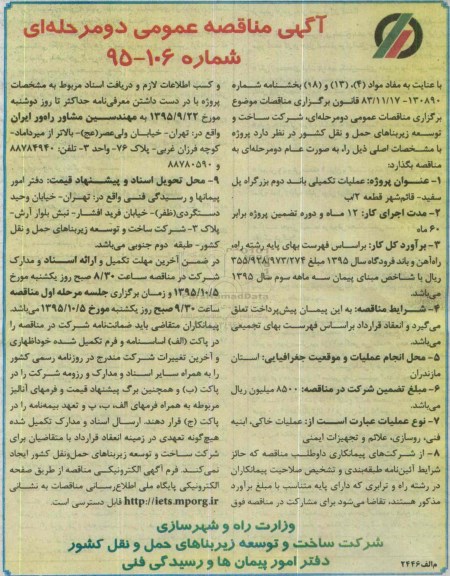 آگهی مناقصه عمومی دومرحله‌ای
شماره ۱۰۶-۹۵
با عنایت به مفاد مواد (۴)، (۱۳) و (۱۸) بخشنامه شماره
۱۳۰۸۹۰-۸۳/۱۱/۱۷ قانون برگزاری مناقصات موضوع
برگزاری مناقصات عمومی دومرحله‌ای، شرکت ساخت و
توسعه زیربناهای حمل و نقل کشور در نظر دارد پروژه
با مشخصات اصلی ذیل را، به صورت عام دومرحله‌ای به
مناقصه بگذارد:
۱- عنوان پروژه: عملیات تکمیلی باند دوم بزرگراه پل
سفید- قائم‌شهر قطعه ۲/ب
۲- مدت اجرای کار: ۱۲ ماه و دوره تضمین پروژه برابر
۶۰ ماه
۳- برآورد کل کار: براساس فهرست بهای پایه رشته راه،
راه‌آهن و باند فرودگاه سال ۱۳۹۵ مبلغ ۳۵۵/۹۲۸/۹۷۳/۲۷۴
ریال با شاخص مبنای پیمان سه ماهه سوم سال ۱۳۹۵
می‌باشد.
۴- شرایط مناقصه: به این پیمان پیش‌پرداخت تعلق
می‌گیرد و انعقاد قرارداد براساس فهرست بهای تجمیعی
می‌باشد.
۵- محل انجام عملیات و موقعیت جغرافیایی: استان
مازندران
۶- مبلغ تضمین شرکت در مناقصه: ۸۵۰۰ میلیون ریال
می‌باشد.
۷- نوع عملیات عبارت است از: عملیات خاکی، ابنیه
فنی، روسازی، علائم و تجهیزات ایمنی
۸- از شرکت‌های پیمانکاری داوطلب مناقصه که حائز
شرایط آئین‌نامه طبقه‌بندی و تشخیص صلاحیت پیمانکاران
در رشته راه و ترابری که دارای پایه متناسب با مبلغ برآورد
مذکور هستند، تقاضا می‌شود برای مشارکت در مناقصه فوق
و کسب اطلاعات لازم و دریافت اسناد مربوط به مشخصات
پروژه با در دست داشتن معرفی‌نامه حداکثر تا روز دوشنبه
مورخ ۱۳۹۵/۹/۲۲ به مهندسین مشاور راه‌ور ایران
واقع در: تهران- خیابان ولی‌عصر(عج)- بالاتر از میرداماد-
کوچه فرزان غربی- پلاک ۷۶- واحد ۳- تلفن: ۸۸۷۸۴۹۴۰
و ۸۸۷۸۰۵۹۰
۹- محل تحویل اسناد و پیشنهاد قیمت: دفتر امور
پیمانها و رسیدگی فنی واقع در: تهران- خیابان وحید
دستگردی(ظفر)- خیابان فرید افشار- نبش بلوار آرش-
پلاک ۳- شرکت ساخت و توسعه زیربناهای حمل و نقل
کشور- طبقه دوم جنوبی می‌باشد.
در ضمن آخرین مهلت تکمیل و ارائه اسناد و مدارک
شرکت در مناقصه ساعت ۸/۳۰ صبح روز یکشنبه مورخ
۱۳۹۵/۱۰/۵ و زمان برگزاری جلسه مرحله اول مناقصه
ساعت ۹/۳۰ صبح روز یکشنبه مورخ ۱۳۹۵/۱۰/۵ می‌باشد.
پیمانکاران متقاضی باید ضمانت‌نامه شرکت در مناقصه را
در پاکت (الف) اساسنامه و فرم تکمیل شده خوداظهاری
و آخرین تغییرات شرکت مندرج در روزنامه رسمی کشور
را به همراه سایر اسناد و مدارک و رزومه شرکت را در
پاکت (ب) و همچنین برگ پیشنهاد قیمت و فرمهای آنالیز
مربوطه به همراه فرمهای الف، ب، پ و تعهد بیمه‌نامه را در
پاکت (ج) قرار دهند. ارسال اسناد و مدارک تکمیل شده
هیچ‌گونه تعهدی در زمینه انعقاد قرارداد با متقاضیان برای
شرکت ساخت و توسعه زیربناهای حمل‌ونقل کشور ایجاد
نمی‌کند. فرم آگهی الکترونیکی مناقصه از طریق صفحه
الکترونیکی پایگاه ملی اطلاع‌رسانی مناقصات به نشانی
http://iets.mporg.ir قابل دسترسی است.
وزارت راه و شهرسازی
شرکت ساخت و توسعه زیربناهای حمل و نقل کشور
دفتر امور پیمان ها و رسیدگی فنی
م/الف ۲۴۴۶